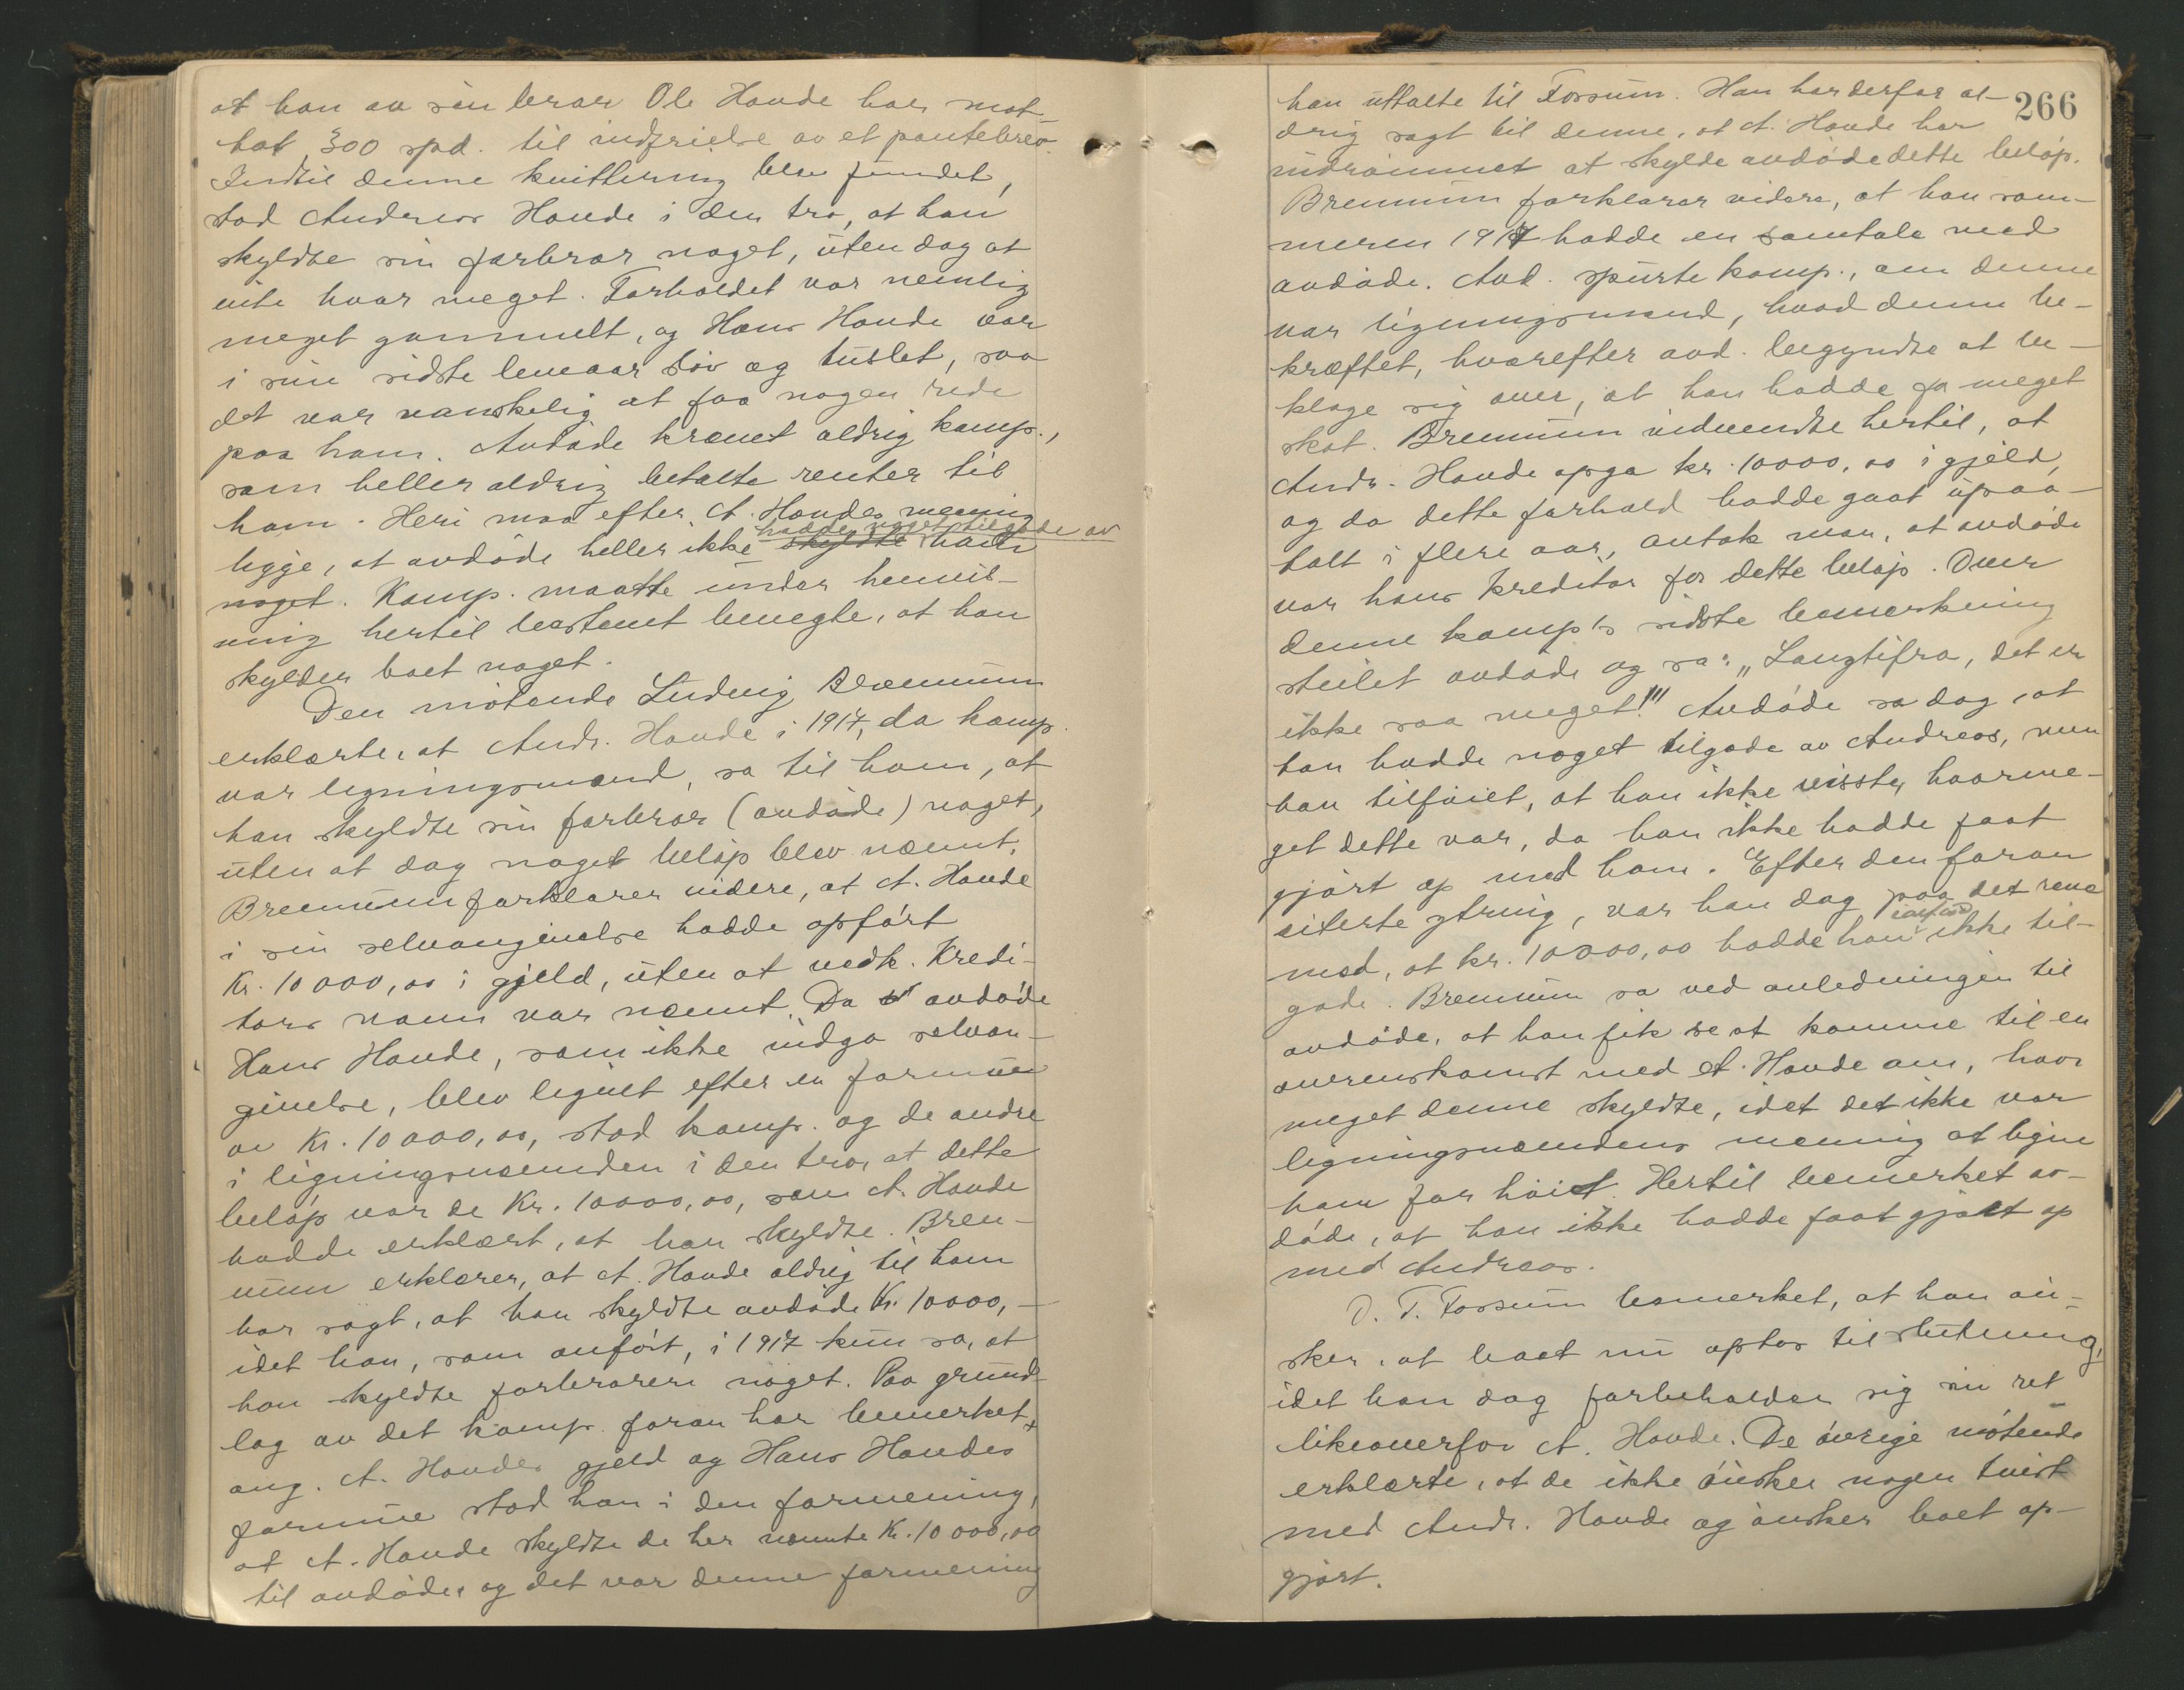 at han av sin bror Ole Hovde har mot-
tat 300 spd. til indfrielse av et pantebrev.
Indtil denne kvittering blev fundet,
stod Andreas Hovde i den tro, at han
skyldte sin farbror noget, uten dog at
vite hvor meget. Forholdet var nemlig
meget gammelt, og Hans Hovde var
i sine sidste leveaar sløv og tuslet, saa
det var vanskelig at faa nogen rede
paa ham. Avdøde krævet aldrig komp.,
som heller aldrig betalte renter til
ham. Heri maa efter A. Hovdes mening
hadde noget tilgode av
ligge, at avdøde heller ikke skyldte ham
noget. Komp. maatte under henvis-
ning hertil bestemt benegte, at han
skylder boet noget.
Den møtende Ludvig Bremnum
erklærte, at Andr. Hovde i 1917, da komp.
var ligningsmand, sa til ham, at
han skyldte sin farbror (avdøde) noget,
uten at dog noget beløp blev nævnt.
Bremnum forklarer videre, at A. Hovde
i sin selvangivelse hadde opført
Kr. 10 000,00 i gjeld, uten at vedk. Kredi-
tors navn var nævnt. Da avdøde
Hans Hovde, som ikke indga selvan-
givelse, blev lignet efter en formue
av Kr. 10 000,00, stod komp. og de andre
i ligningsnævnden i den tro, at dette
beløp var de Kr. 10000,00, som A. Hovde
hadde erklært, at han skyldte. Brem-
num erklærer, at A. Hovde aldrig til ham
har sagt, at han skyldte avdøde Kr. 10000,-
idet han, som anført, i 1917 kun sa, at
han skyldte farbroren noget. Paa grund-
lag av det komp. foran har bemerket
ang. A. Hovdes gjeld og Hans Hovdes
formue stod han i den formening,
at A. Hovde skyldte de her nævnte Kr. 10 000,00
til avdøde, og det var denne formening
266
han uttalte til Fossum. Han har derfor al-
drig sagt til denne, at A. Hovde har
indrømmet at skylde avdøde dette beløp.
Bremnum forklarer videre, at han som-
meren 1917 hadde en samtale med
avdøde. Avd. spurte komp., om denne
var ligningsmand, hvad denne be-
kræftet, hvorefter avd. begyndte at be-
klage sig over, at han hadde for meget
skat. Bremnum indvendte hertil, at
Andr. Hovde opga kr. 10000,00 i gjeld,
og da dette forhold hadde gaat upaa-
talt i flere aar, antok man, at avdøde
var hans kreditor for dette beløp. Over
denne komp's sidste bemerkning
steilet avdøde og sa: „Langtifra, det er
ikke saa meget!" Avdøde sa dog, at
han hadde noget tilgode av Andreas, men
han tilføiet, at han ikke visste, hvorme-
get dette var, da han ikke hadde faat
gjort op med ham. Efter den foran
siterte ytring, var han dog paa det rene
ialfald
med, at kr. 10 000,00 hadde han ikke til-
gode. Bremnum sa ved anledningen til
avdøde, at han fik se at komme til en
overenskomst med A. Hovde om, hvor
meget denne skyldte, idet det ikke var
ligningsnævndens mening at ligne
ham for høiet. Hertil bemerket av-
døde, at han ikke hadde faat gjort op
med Andreas.
O. T. Fossum bemerket, at han øn-
sker, at boet nu optas til slutning,
idet han dog forbeholder sig sin ret
likeoverfor A. Hovde. De øvrige møtende
erklærte, at de ikke ønsker nogen tvist
med Andr. Hovde og ønsker boet op-
gjort.